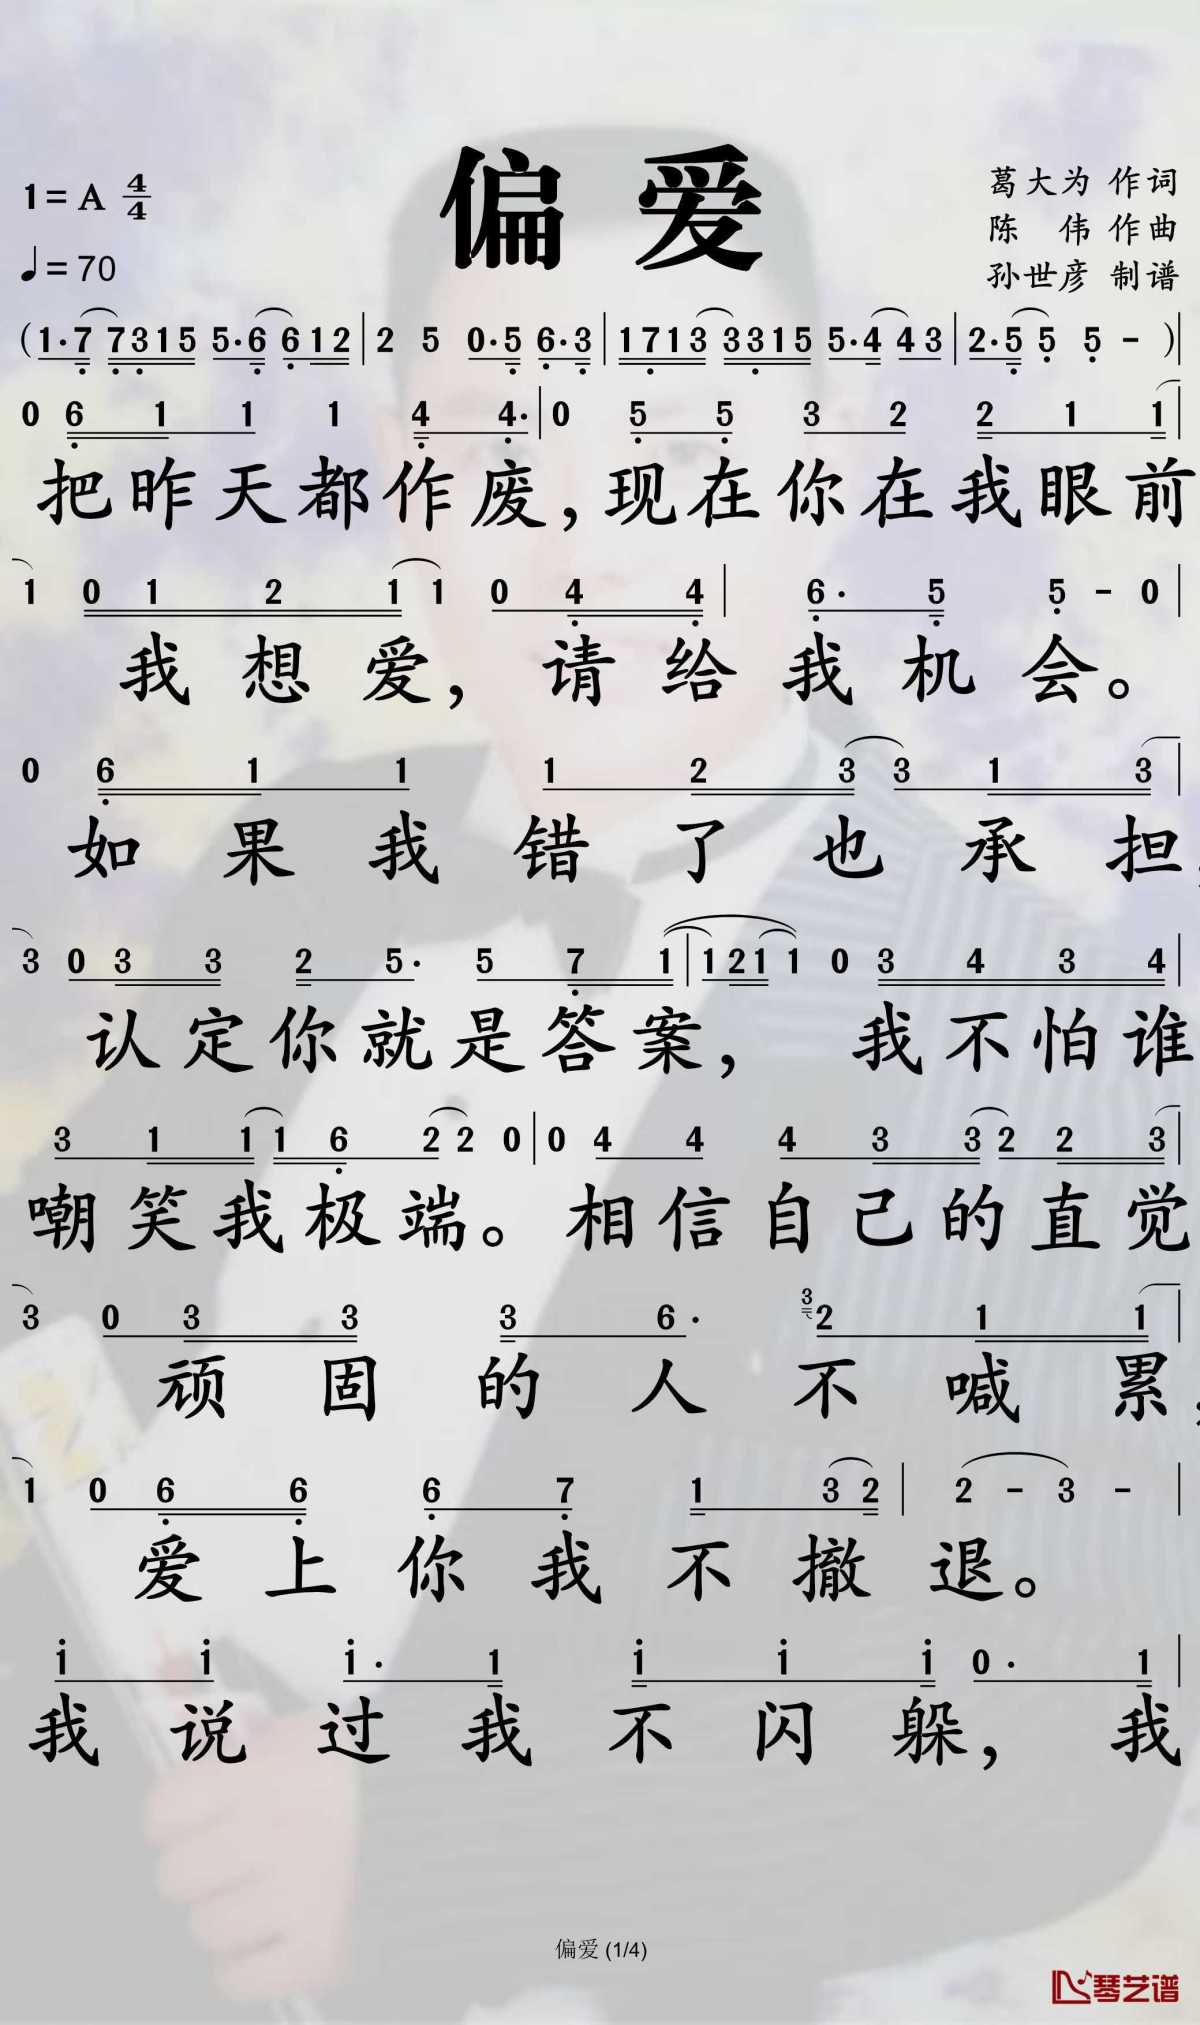 偏爱
1=A 4/4
葛大为 作词
陈 伟 作曲
♩=70
孙世彦 制谱
(1·7 7315 5·6 612 | 2 5 0·5 6·3 | 1713 3315 5·4 43 | 2·5 5 5 - )|
0 6 1 1 1 4 4· | 0 5 5 3 2 2 1 1 |
把昨天都作废,现在你在我眼前
1 0 1 2 1 1 0 4 4 | 6· 5 5 - 0
我想爱,请给我机会。
0 6 1 1 1 2 3 3 1 3 |
如果我错了也承担,
3 0 3 3 2 5· 5 7 1 | 1 2 1 1 0 3 4 3 4 |
认定你就是答案, 我不怕谁
3 1 1 1 6 2 2 0 | 0 4 4 4 3 3 2 2 3 |
嘲笑我极端。相信自己的直觉
3 0 3 3 3 6· 3 2 1 1 |
顽固的人不喊累,
1 0 6 6 6 7 1 3 2 | 2 - 3 -
爱上你我不撤退。
1 1 1· 1 1 1 1 0· 1 |
我说过我不闪躲, 我
偏爱 (1/4)
琴艺谱